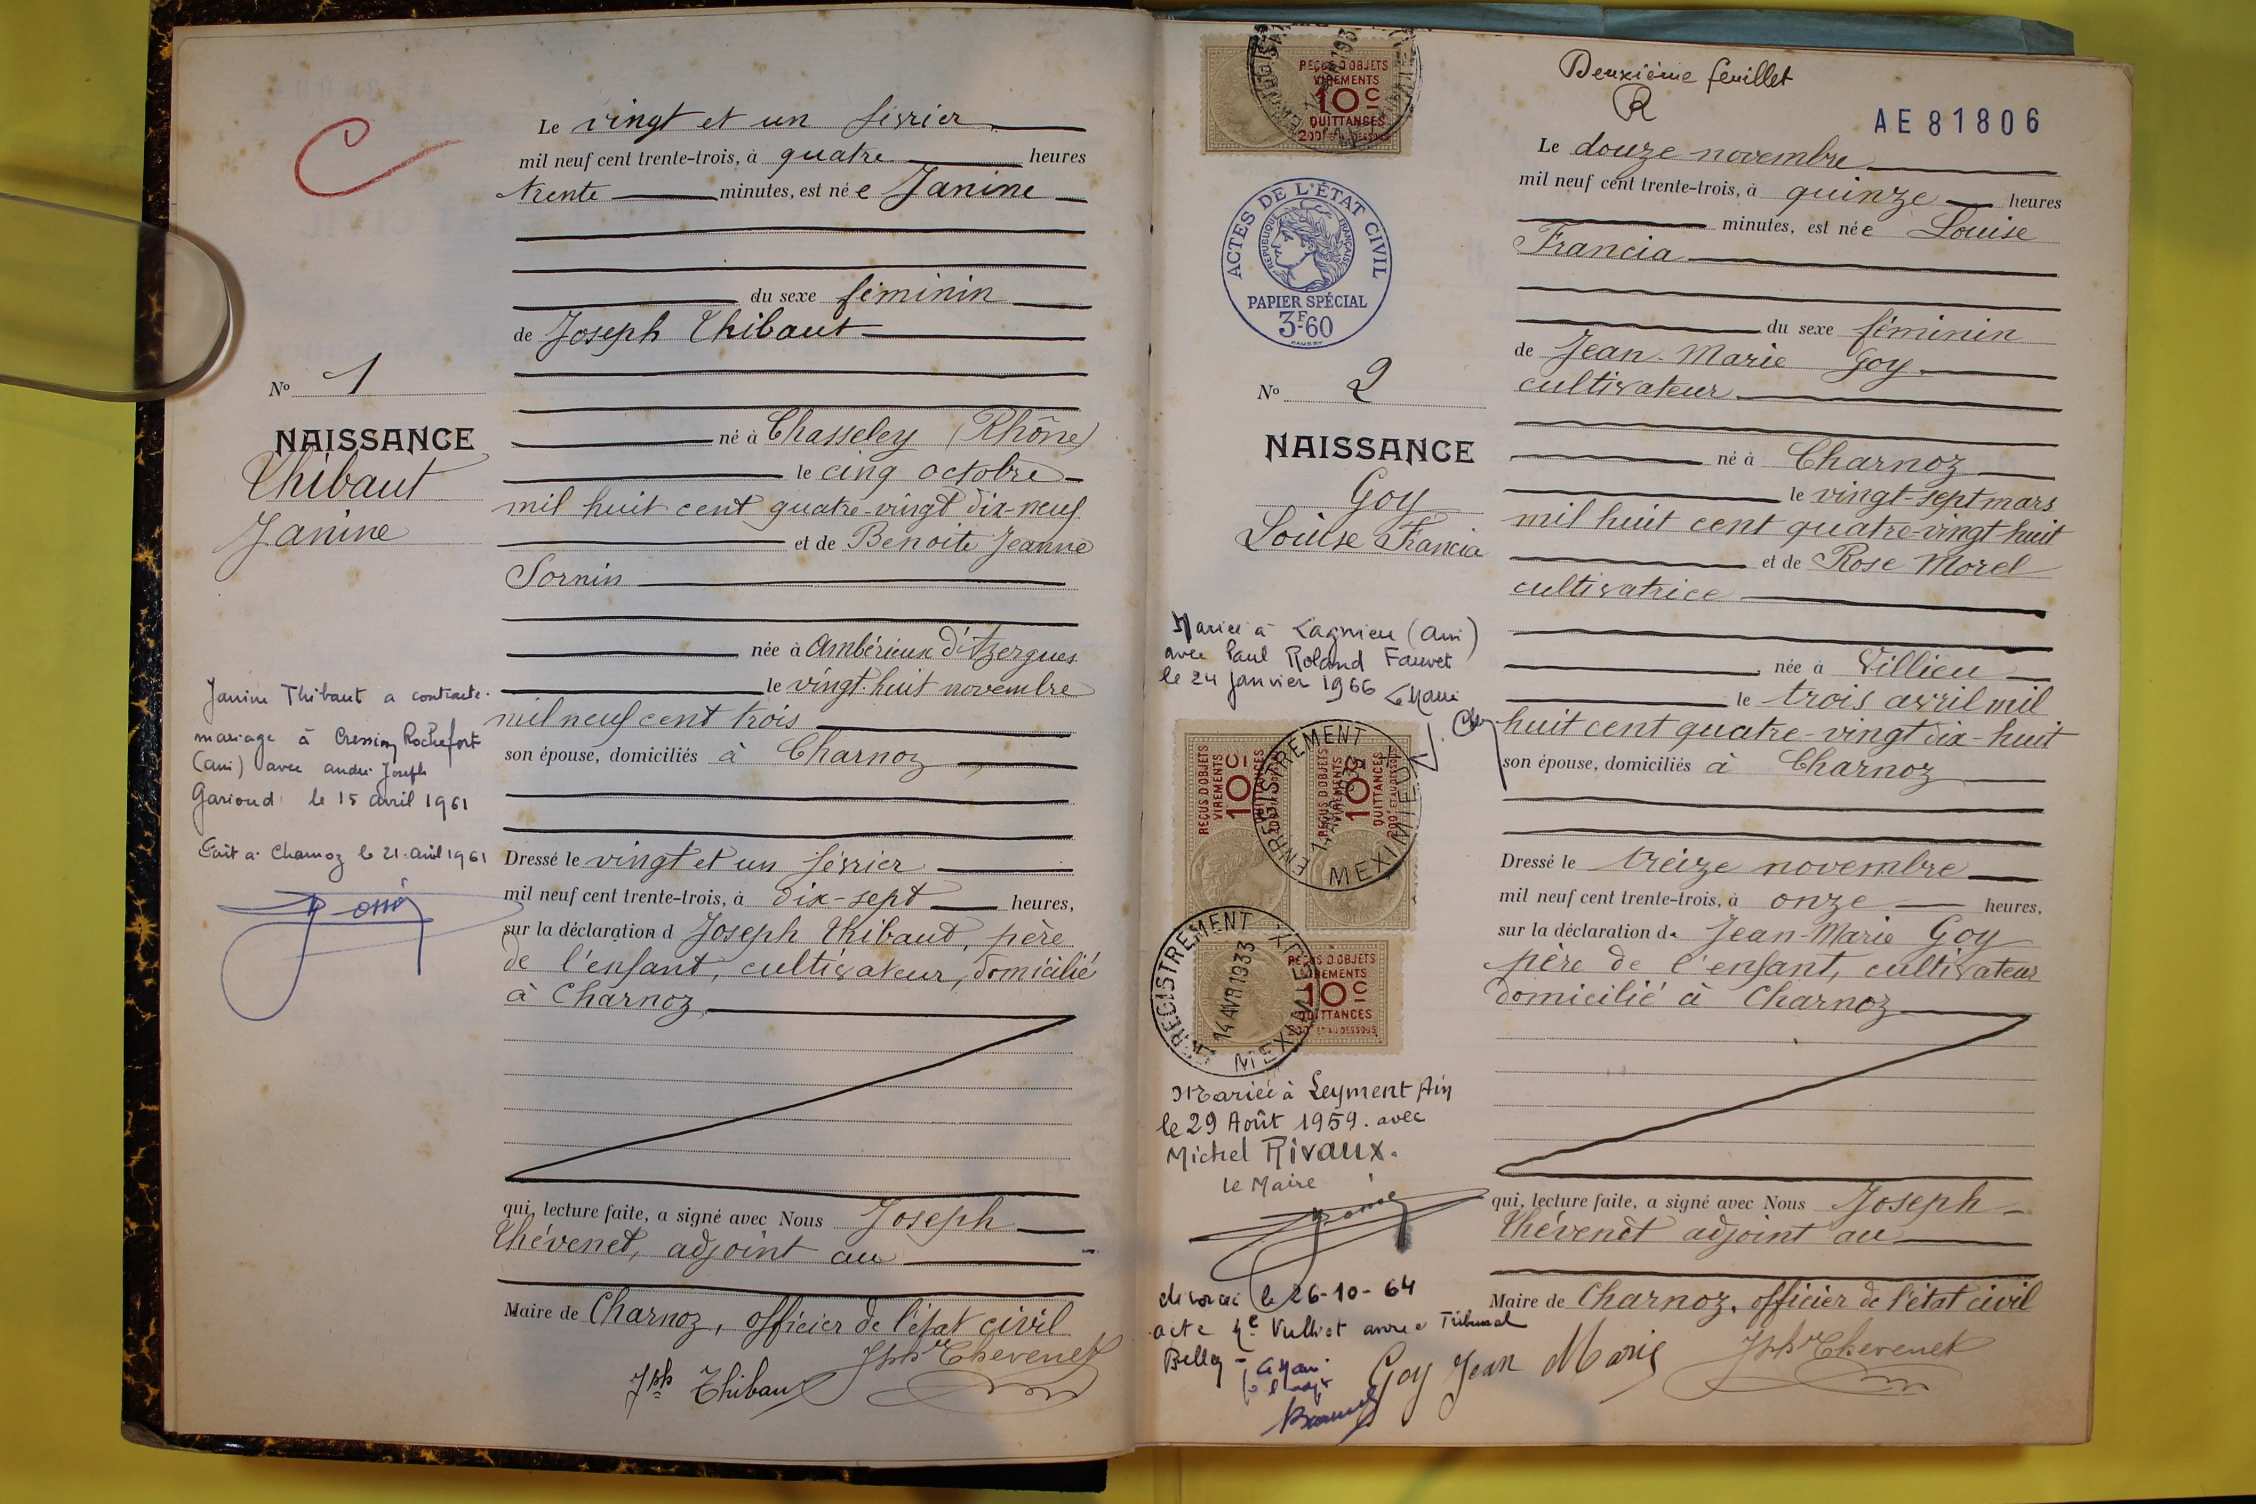 Le vingt et un février
mil neuf cent trente-trois, à quatre heures
trente minutes, est née Janine
du sexe féminin
de Joseph Thibaut
No 1
NAISSANCE
Thibaut
Janine
né à Chasseley (Rhône)
le cinq octobre
mil huit cent quatre-vingt dix-neuf
et de Benoite Jeanne
Sornin
née à Ambérieux d'Azergues
le vingt-huit novembre
mil neuf cent trois
son épouse, domiciliés à Charnoz
Janine Thibaut a contracté
mariage à Cressin Rochefort
(Ain) avec André Joseph
Garioud le 15 avril 1961
Fait à Charnoz le 21 Avril 1961
Dressé le vingt et un février
mil neuf cent trente-trois, à dix-sept heures,
sur la déclaration d Joseph Thibaut, père
de l'enfant, cultivateur, domicilié
à Charnoz
qui, lecture faite, a signé avec Nous Joseph
Thévenet, adjoint au
Maire de Charnoz, officier de l'état civil
Jph Thibaut
Jph Thevenet
Deuxième feuillet
R
AE 81806
REÇUS D'OBJETS
VIREMENTS
10c
QUITTANCES
ACTES DE L'ÉTAT CIVIL
RÉPUBLIQUE FRANÇAISE
PAPIER SPÉCIAL
3F60
Le douze novembre
mil neuf cent trente-trois, à quinze heures
minutes, est née Louise
Francia
du sexe féminin
de Jean-Marie Goy
cultivateur
No 2
NAISSANCE
Goy
Louise Francia
né à Charnoz
le vingt-sept mars
mil huit cent quatre-vingt-huit
et de Rose Morel
cultivatrice
née à Villieu
le trois avril mil
huit cent quatre-vingt dix-huit
son épouse, domiciliés à Charnoz
Mariée à Lagnieu (Ain)
avec Paul Roland Fauvet
le 24 janvier 1966 Le Maire
REÇUS D'OBJETS
VIREMENTS
10c
QUITTANCES
REÇUS D'OBJETS
VIREMENTS
10c
QUITTANCES
ENREGISTREMENT
MEXIMIEUX
REÇUS D'OBJETS
VIREMENTS
10c
QUITTANCES
ENREGISTREMENT
14 AVR 1933
MEXIMIEUX
Dressé le treize novembre
mil neuf cent trente-trois, à onze heures,
sur la déclaration de Jean-Marie Goy
père de l'enfant, cultivateur
domicilié à Charnoz
Mariée à Leyment Ain
le 29 Août 1959. avec
Michel Rivaux.
le Maire
divorcée le 26-10-64
acte Vulliet avoué Tribunal
Belley
qui, lecture faite, a signé avec Nous Joseph
Thévenet adjoint au
Maire de Charnoz, officier de l'état civil
Goy Jean Marie
Jph Thevenet